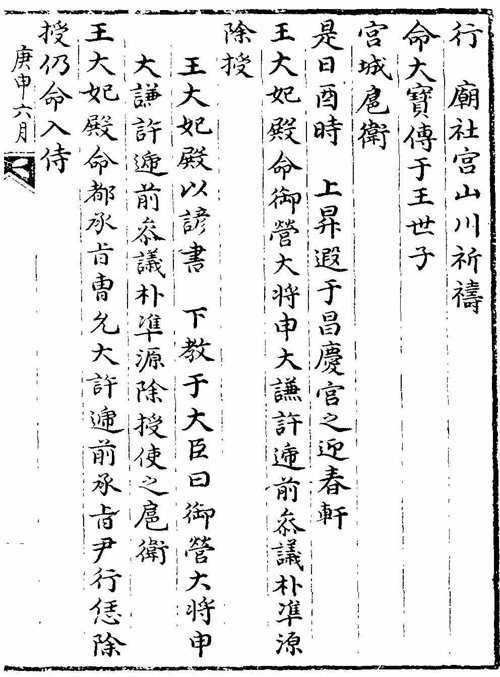 行　廟社宮山川祈禱
命大寶傳于王世子
宮城扈衛
是日酉時　上昇遐于昌慶宮之迎春軒
王大妃殿命御營大將申大謙許遞前參議朴準源
除授
王大妃殿以諺書　下教于大臣曰御營大將申
大謙許遞前叅議朴準源除授使之扈衛
王大妃殿命都承旨曺允大許遞前承旨尹行恁除
授仍命入侍
庚申六月